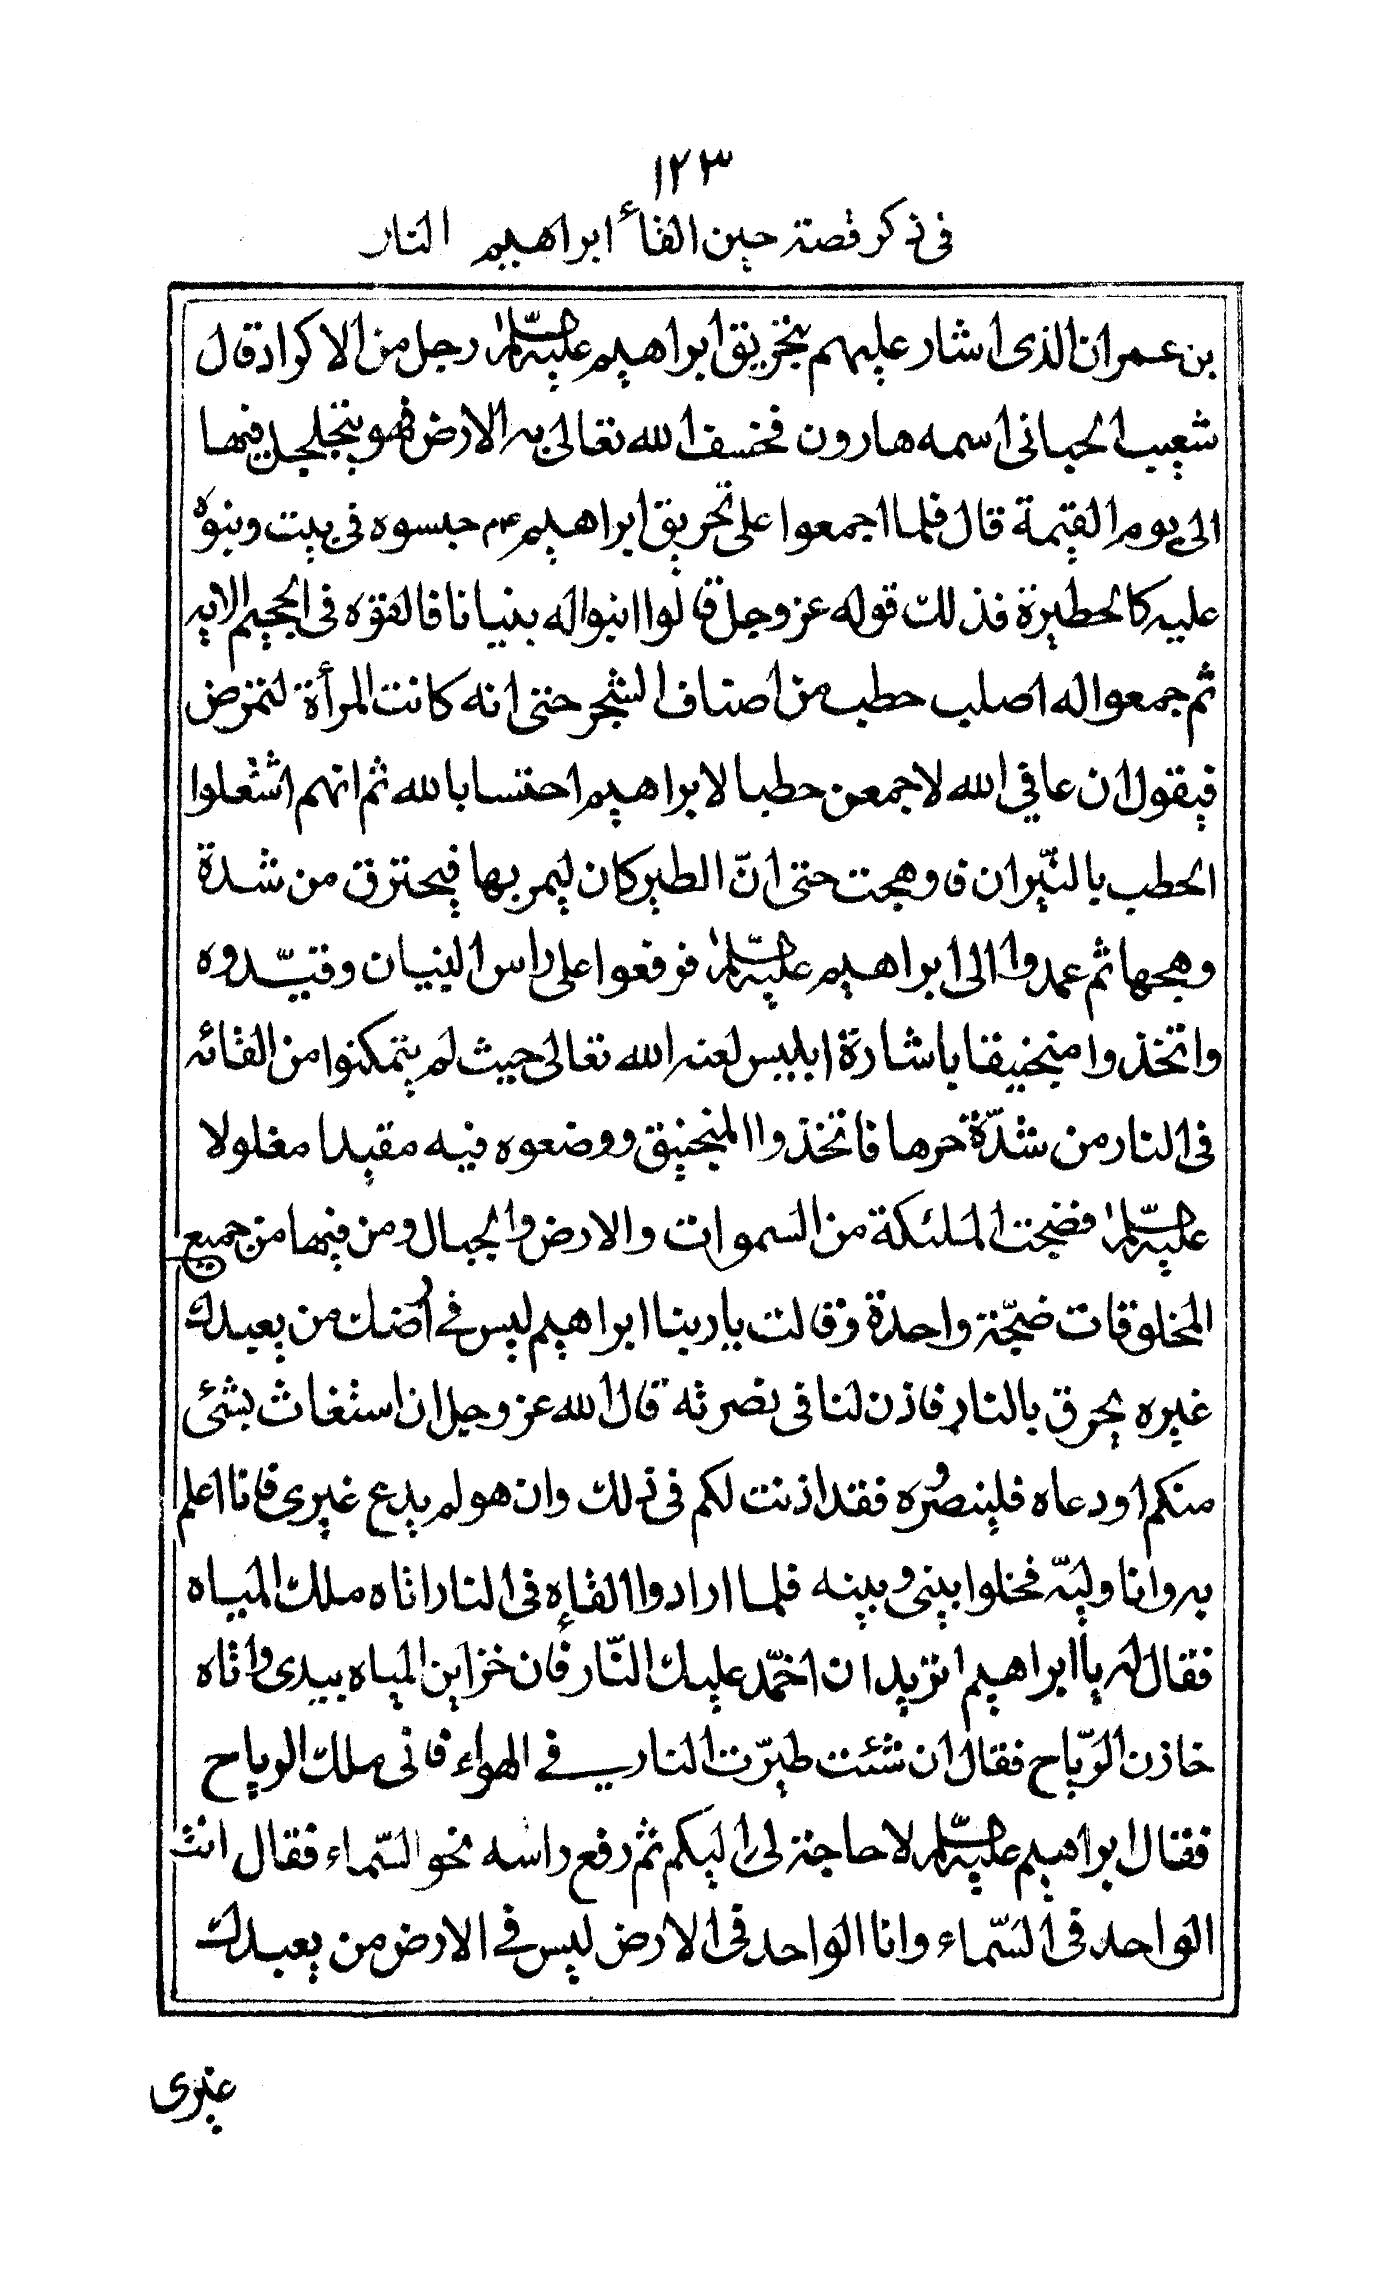 ١٢٣
فى ذكر قصة حين القاء ابراهيم النار
بن عمران الذى اشار عليهم بتحريق ابراهيم عليه السلم رجل من الاكراد قال
شعيب الجبانى اسمه هارون فخسف الله تعالى به الارض فهو يتجلجل فيها
الى يوم القيمة قال فلما اجمعوا على تحريق ابراهيم ع م حبسوه فى بيت وبنوه
عليه كالحظيرة فذلك قوله عز وجل قالوا ابنوا له بنيانا فالقوه فى الجحيم الايه
ثم جمعوا له اصلب حطب من اصناف الشجر حتى انه كانت المرأة لتمرض
فيقول ان عافي الله لاجمعن حطبا لابراهيم احتسابا بالله ثم انهم اشعلوا
الحطب بالنيّران فاوهجت حتى انّ الطير كان ليمر بها فيحترق من شدة
وهجها ثم عمدوا الى ابراهيم عليه السّلم فرفعوا على راس البنيان وقيّدوه
واتخذوا منجنيقا باشارة ابليس لعنه الله تعالى حيث لم يتمكنوا من القائه
فى النار من شدّة حرها فاتخذوا المنجنيق ووضعوه فيه مقيدا مغلولا
عليه السّلم فضجت الملئكة من السموات والارض والجبال ومن فيها من جميع
المخلوقات ضجّة واحدة وقالت يا ربنا ابراهيم ليس في أرضك من يعبدك
غيره يحرق بالنار فاذن لنا فى نصرته قال الله عز وجل ان استغاث بشئ
منكم او دعاه فلينصُره فقد اذنت لكم فى ذلك وان هو لم يدع غيرى فانا اعلم
به وانا وليّه فخلوا بينى وبينه فلما ارادوا القاءه فى النار اتاه ملك المياه
فقال له يا ابراهيم اتريد ان اخمّد عليك النّار فأن خزاين المياه بيدى واتاه
خازن الرّياح فقال ان شئت طيرّت النار في الهواء فانى ملك الرياح
فقال ابراهيم عليه السّلم لا حاجة لى اليكم ثم رفع راسه نحو السّماء فقال انت
الواحد فى السّماء وانا الواحد فى الارض ليس في الارض من يعبدك
غيرى